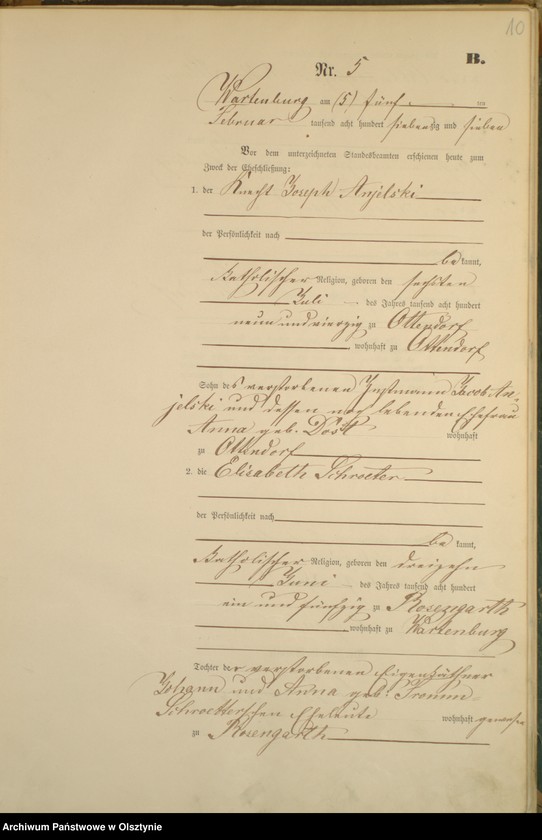 10
B.
Nr. 5
Wartenburg am (5) fünf ten
Februar tausend acht hundert siebenzig und sieben
Vor dem unterzeichneten Standesbeamten erschienen heute zum
Zweck der Eheschließung:
1. der Knecht Joseph Anjelski
der Persönlichkeit nach
be kannt,
katholischer Religion, geboren den sechsten
Juli des Jahres tausend acht hundert
neun und vierzig zu Ottendorf
, wohnhaft zu Ottendorf
Sohn des verstorbenen Instmann Jacob An-
jelski und dessen noch lebenden Ehefrau
Anna geb. Dost wohnhaft
zu Ottendorf
2. die Elisabeth Schroeter
der Persönlichkeit nach
be kannt,
katholischer Religion, geboren den dreizehn
Juni des Jahres tausend acht hundert
ein und fünfzig zu Rosengarth
, wohnhaft zu Wartenburg
Tochter der verstorbenen Eigenkäthner
Johann und Anna geb. Fromm
Schroetterschen Eheleute wohnhaft gewesen
zu Rosengarth
Archiwum Państwowe w Olsztynie